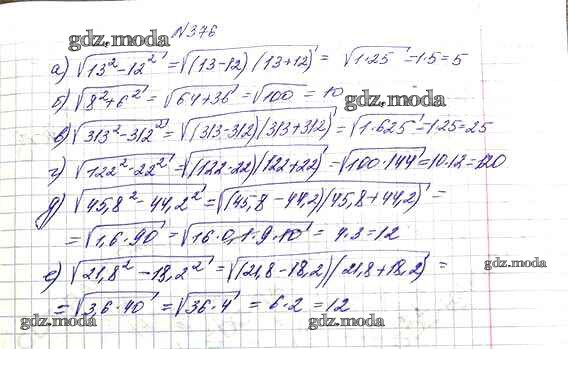 N376
gdz.moda
а) √13²-12² = √(13-12)(13+12) = √1·25 = 1·5 = 5
б) √8²+6² = √64+36 = √100 = 10
gdz.moda
в) √313²-312² = √(313-312)(313+312) = √1·625 = 1·25 = 25
г) √122²-22² = √(122-22)(122+22) = √100·144 = 10·12 = 120
д) √45,8²-44,2² = √(45,8-44,2)(45,8+44,2) =
= √1,6·90 = √16·0,1·9·10 = 4·3 = 12
е) √21,8²-18,2² = √(21,8-18,2)(21,8+18,2) =
gdz.moda
= √3,6·40 = √36·4 = 6·2 = 12
gdz.moda gdz.moda